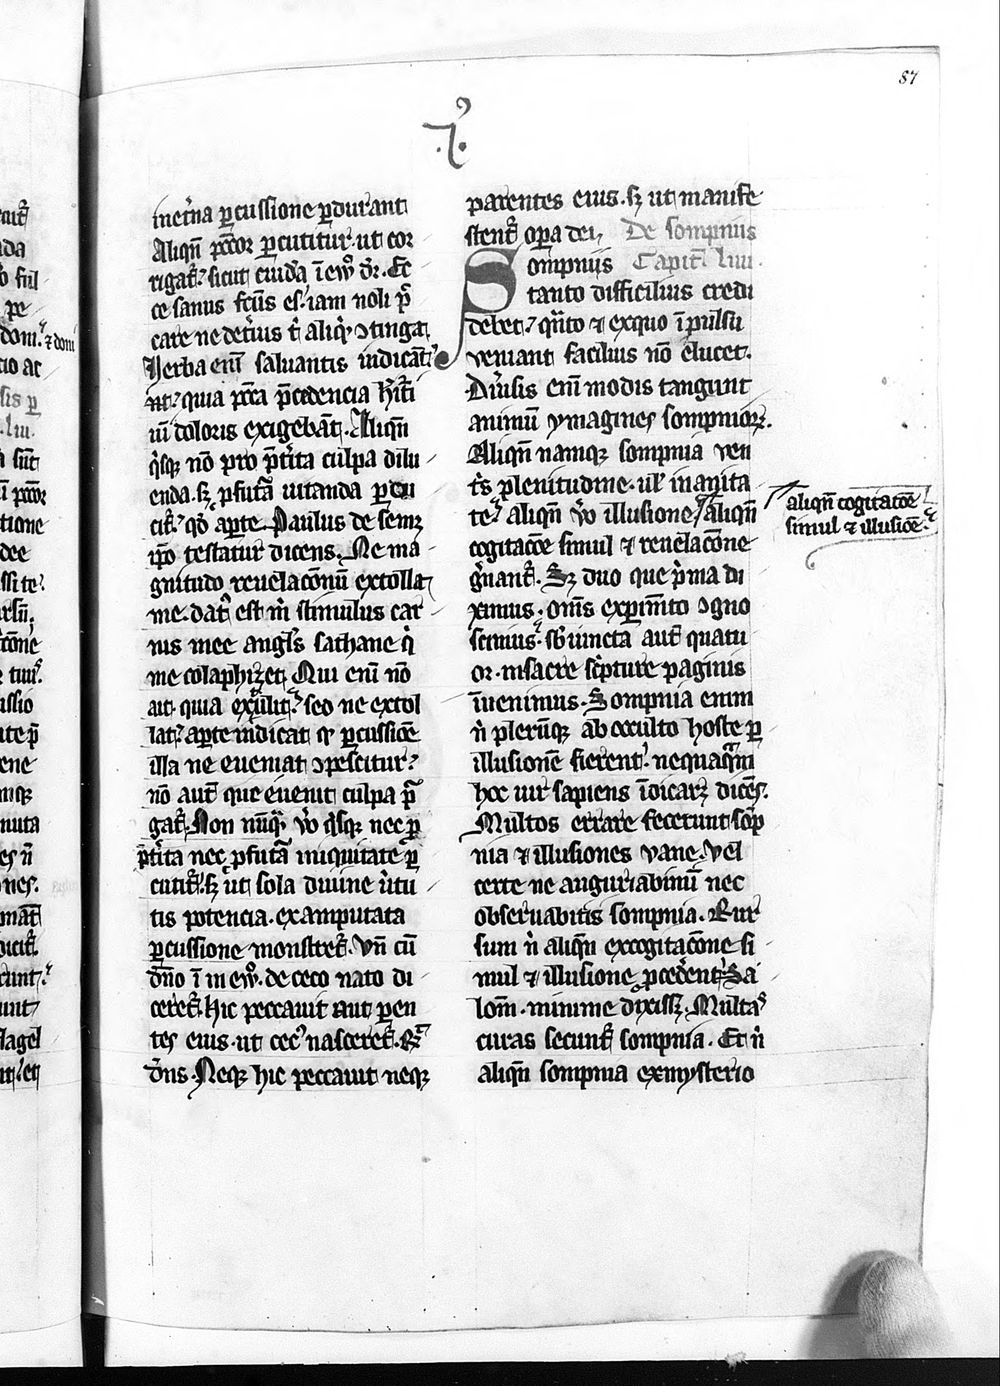 87
.I.
inet̉na ꝑcussione ꝑdurant
Aliqn̄ pc̄c̄or ꝑcutitur ut cor
rigat̉ sicut cuidā ī eȗo dr̄. Ec
ce sanus fcūs es. iam noli p̄
care ne det̉ius t̉ aliqͥ ↄtingat
Verba enī saluantis indicāt
nt̉ quia pc̄c̄a p̄cedencia
uī doloris exigebāt. Aliqn̄
qͥsqꝫ nō pro p̄t̉ita culpa dilu
enda. sꝫ ꝓ futā uitanda ꝑcu
cit̉ qd̄ aꝑte Paulus de semꝫ
ip̄o testatur dicens. Ne ma
gnitudo reuelac̄onū extolla
me. dat̉ est m̄ stimulus car
nis mee angl̄s sathane qͥ
me colaphizet. Qui enī nō
ait. quia extulit̉ sed ne extol
lat̉ aꝑte indicat qͥ ꝑcussiōe
illa ne eueniat ↄpescitur
nō aut̄ que euenit culpa pͥ
gat̉. Non nūqͣ v̊o qͥsqꝫ nec ꝓ
p̄t̉ita nec ꝓ futā iniquitate ꝑ
cutit̉. sꝫ ut sola diuine ūtu
tis potencia. ex amputata
ꝑcussione monstret̉. Vn̄ cū
dn̄o ī in eȗo. de ceco nato di
ceret̉. hic peccauit aut ꝑen
tes eius. ut cec̉ nasceret̉. Rͣ
dn̄s. Neqꝫ hic peccauit neqꝫ
parentes eius. sꝫ ut manife
stent̉ oꝑa dei, De sompniis
Sompniis Capit̄. liiii.
tanto difficilius credi
debet. qn̄to & ex quo īpulsu
veniant facilius nō elucet.
Diu̓sis enī modis tangunt
animū ymagines sompnioꝝ.
Aliqn̄ namqꝫ sompnia ven
t̉s plenitudine. ul̄ inanita
te. aliqn̄ v̊o illusione. aliqn̄
cogitac̄oe simul & reuelac̄one
gn̉ant̉. Sꝫ duo que pͥma di
ximus. om̄s exꝑim̄to ↄgno
scimus. sb̄iuncta aut̄ quatu
or. in sacre sc̉pture paginis
īuenimus. Sompnia enim
n̉ plerūqꝫ ab occulto hoste ꝑ
illusionē fierent. nequaqͣm
hoc uir sapiens īdicarꝫ dicēs.
Multos errare fecerunt sōp
nia & illusiones vane. Vel
certe ne auguriabinū nec
obseruabitis sompnia. Rur
sum n̉ aliqn̄ ex cogitac̄one si
mul & illusione ꝓcederent Sa
lom̄. minime dixissꝫ. Multaˢ
curas secunt̉ sompnia. Et n̉
aliqn̄ sompnia ex mysterio
aliqn̄ cogitac̄oe
simul & illusiōe